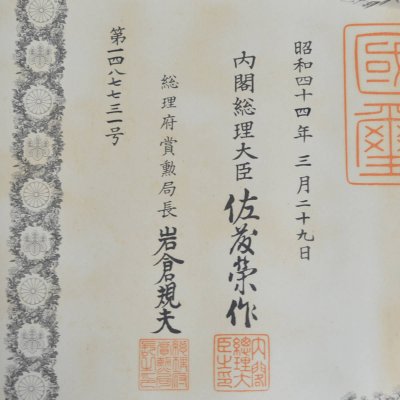 昭和四十四年三月二十九日
内閣総理大臣佐藤榮作
総理府賞勲局長岩倉規夫
第一四八七七三一号
國璽
内閣総理大臣之印